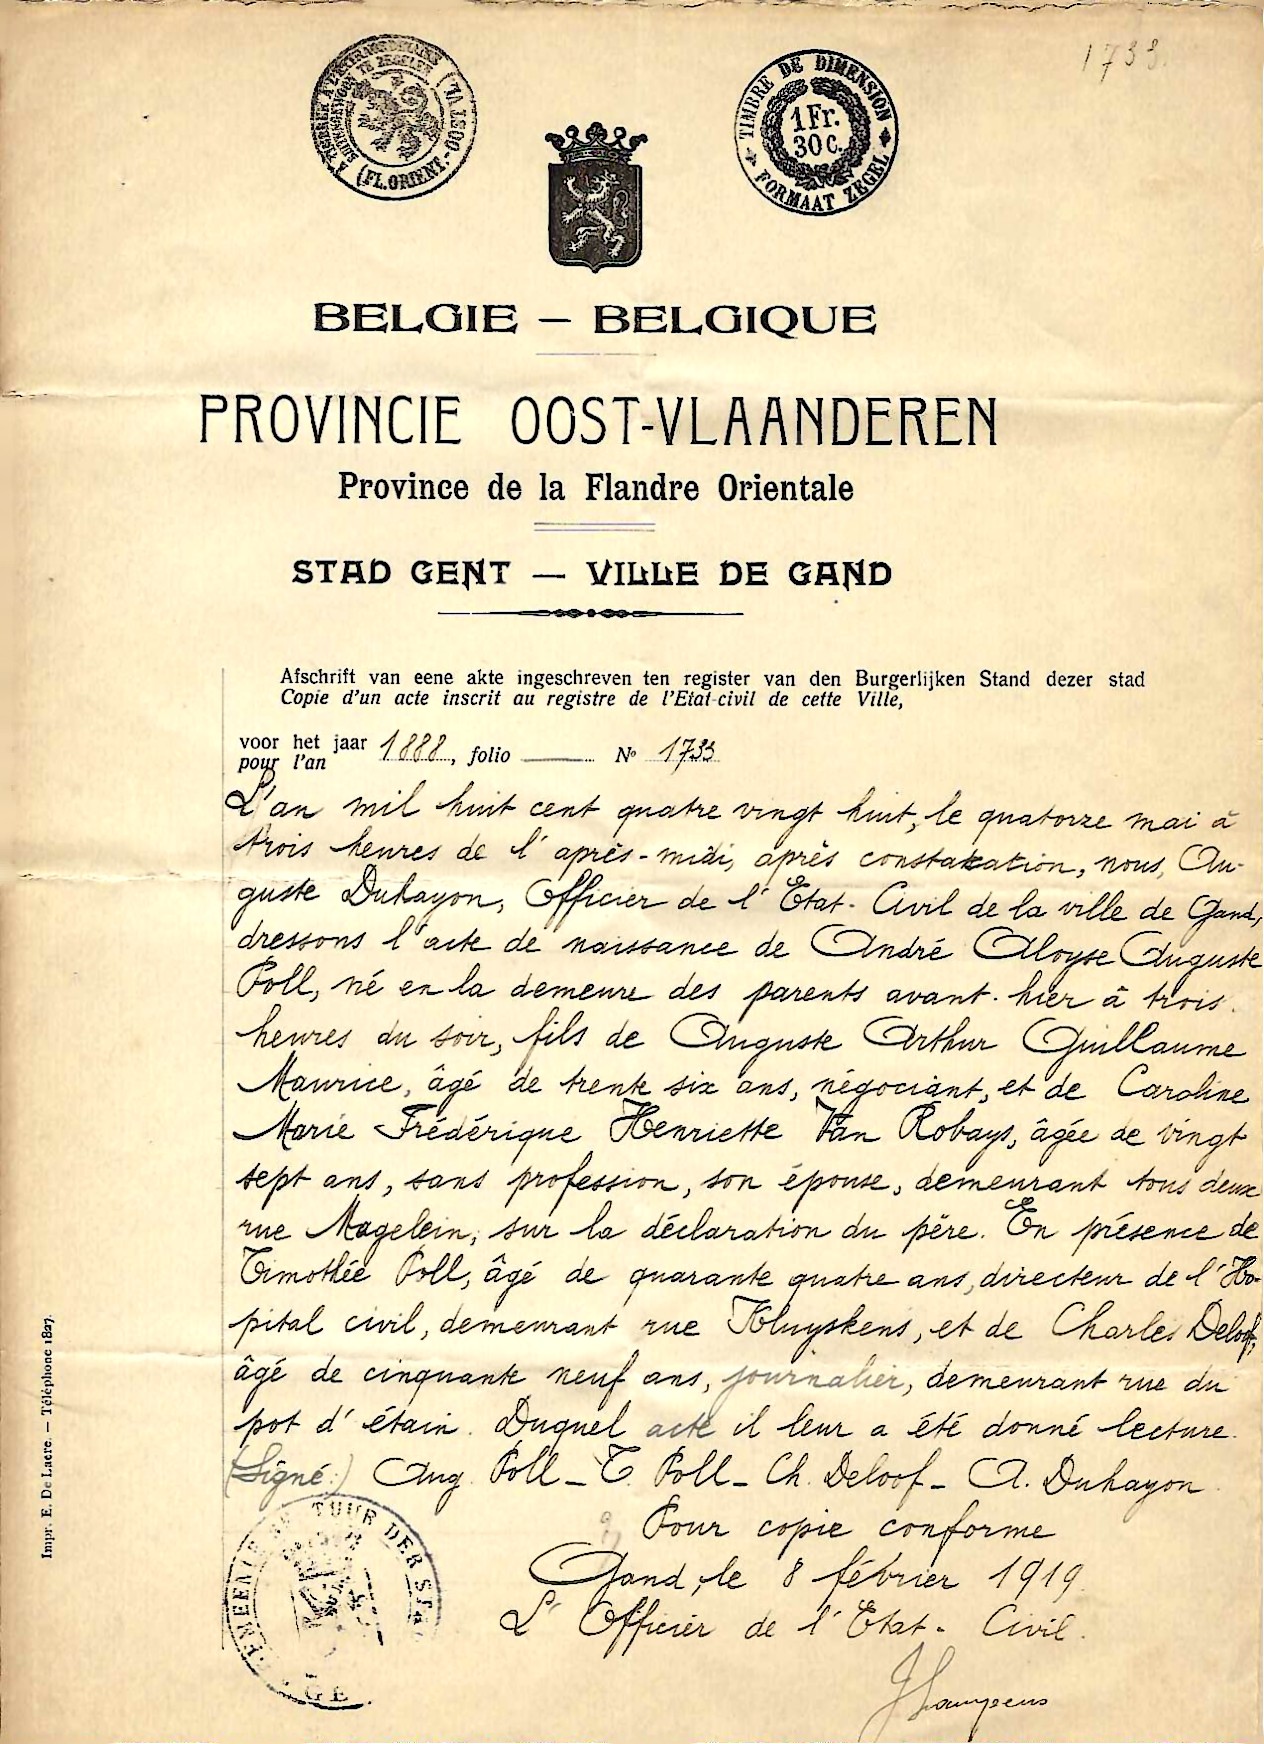 1733.
A TIMBRER A L'EXTRAORDINAIRE
BUITENGEWOON TE ZEGELEN
(FL. ORIENT.-OOST VL.)
TIMBRE DE DIMENSION
1 Fr.
30 C.
FORMAAT ZEGEL
BELGIE — BELGIQUE
PROVINCIE OOST-VLAANDEREN
Province de la Flandre Orientale
STAD GENT — VILLE DE GAND
Afschrift van eene akte ingeschreven ten register van den Burgerlijken Stand dezer stad
Copie d'un acte inscrit au registre de l'Etat-civil de cette Ville,
voor het jaar 1888, folio —— No 1733
pour l'an
L'an mil huit cent quatre vingt huit, le quatorze mai à
trois heures de l'après-midi, après constatation, nous, Au-
guste Duhayon, Officier de l'Etat-Civil de la ville de Gand,
dressons l'acte de naissance de André Aloyse Auguste
Poll, né en la demeure des parents avant-hier à trois
heures du soir, fils de Auguste Arthur Guillaume
Maurice, âgé de trente six ans, négociant, et de Caroline
Marie Frédérique Henriette Van Robays, âgée de vingt
sept ans, sans profession, son épouse, demeurant tous deux
rue Magelein, sur la déclaration du père. En présence de
Timothée Poll, âgé de quarante quatre ans, directeur de l'Ho-
pital civil, demeurant rue Kluyskens, et de Charles Deloof,
âgé de cinquante neuf ans, journalier, demeurant rue du
pot d'étain. Duquel acte il leur a été donné lecture.
(Signé:) Aug. Poll - T. Poll - Ch. Deloof - A. Duhayon.
Pour copie conforme
Gand, le 8 février 1919.
L'Officier de l'Etat-Civil.
TUUR DER ST
Impr. E. De Laere. — Téléphone 1827.